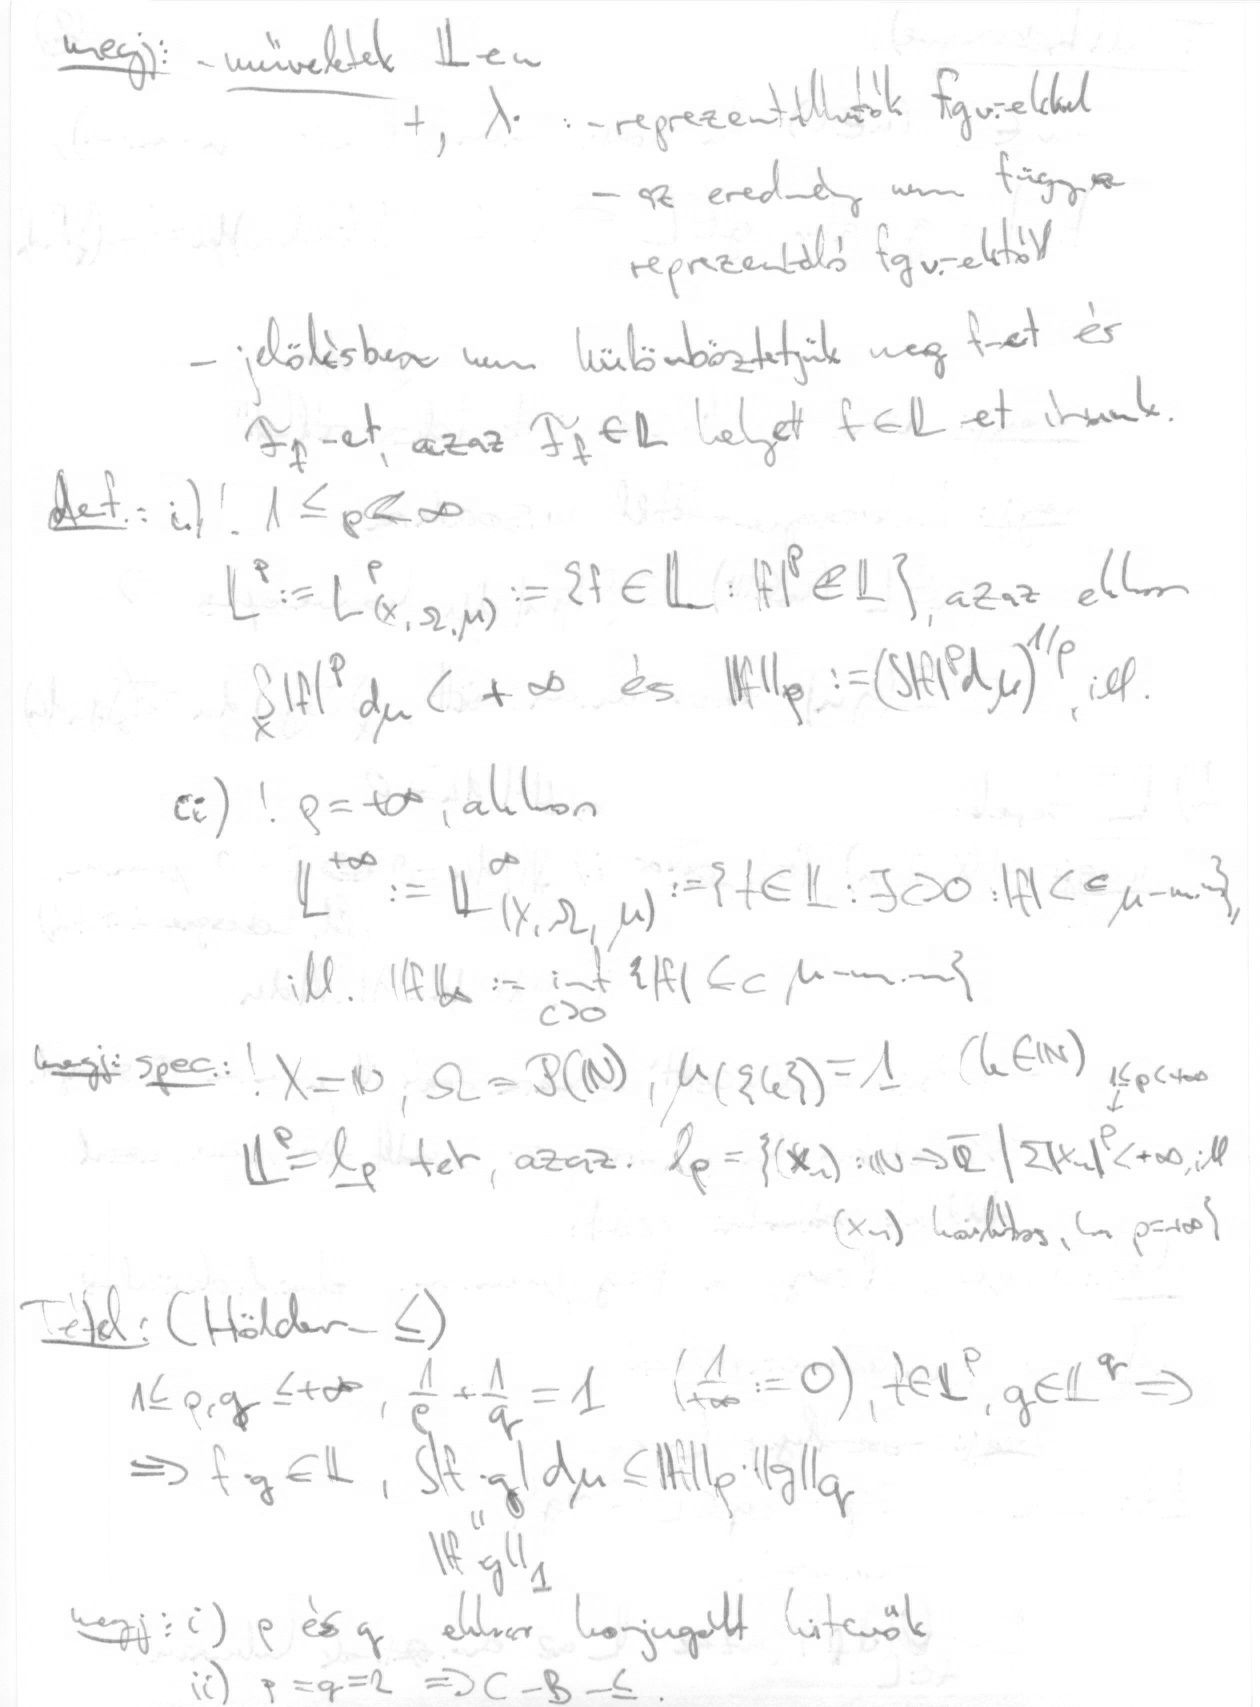 megj: - műveletek 𝕃-en
+, λ· : - reprezentálhatók fgv.-ekkel
- az eredmény nem függ a
reprezentáló fgv.-ektől
- jelölésben nem különböztetjük meg f-et és
ℱ_f -et, azaz ℱ_f ∈ 𝕃 helyett f ∈ 𝕃 -et írunk.
def.: i.) ! 1 ≤ p < ∞
𝕃^p := L^p_(X, Ω, μ) := {f ∈ 𝕃 : |f|^p ∈ 𝕃}, azaz ekkor
∫_X |f|^p dμ < +∞ és ||f||_p := (∫|f|^p dμ)^{1/p}, ill.
ii) ! p = +∞, akkor
𝕃^{+∞} := 𝕃^∞_(X, Ω, μ) := {f ∈ 𝕃 : ∃c>0 : |f| < c μ-m.m.},
ill. ||f||_∞ := inf_{c>0} {|f| ≤ c μ-m.m.}
megj: spec.: ! X = ℕ, Ω = 𝒫(ℕ), μ({k}) = 1 (k ∈ ℕ) 1≤p<+∞
↓
𝕃^p = l_p tér, azaz. l_p = {(x_n) : ℕ → ℝ̄ | Σ|x_n|^p < +∞, ill
(x_n) korlátos, ha p=+∞}
Tétel: (Hölder- ≤)
1 ≤ p, q ≤ +∞, 1/p + 1/q = 1 (1/+∞ := 0), f ∈ 𝕃^p, g ∈ 𝕃^q ⇒
⇒ f·g ∈ 𝕃, ∫|f·g| dμ ≤ ||f||_p · ||g||_q
||
||f g||_1
megj: i) p és q ekkor konjugált kitevők
ii) p = q = 2 ⇒ C - B - ≤.